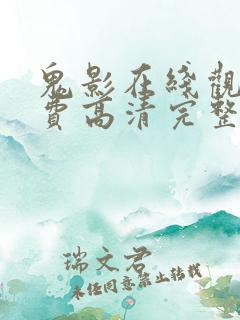 鬼影在綫觀
費高清完整
瑞文君
未经同意禁止转载